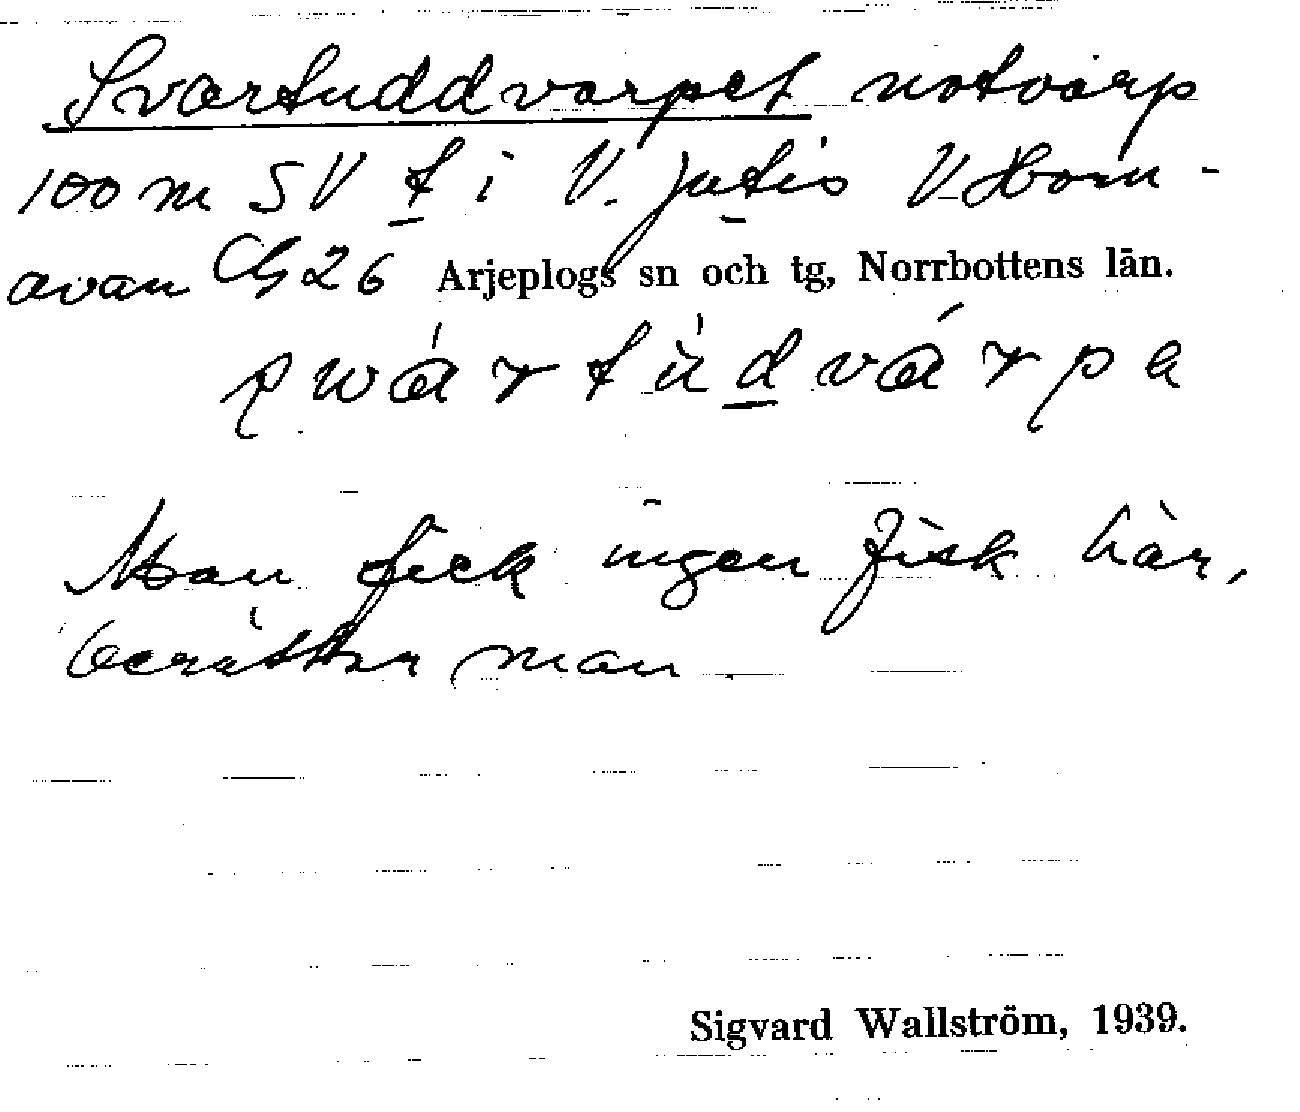 Svartuddvarpet notvarp
100 m SV t i V. Jutis V Horn-
avan Cg 26 Arjeplogs sn och tg, Norrbottens län.
Man fick ingen fisk här,
berättar man
Sigvard Wallström, 1939.